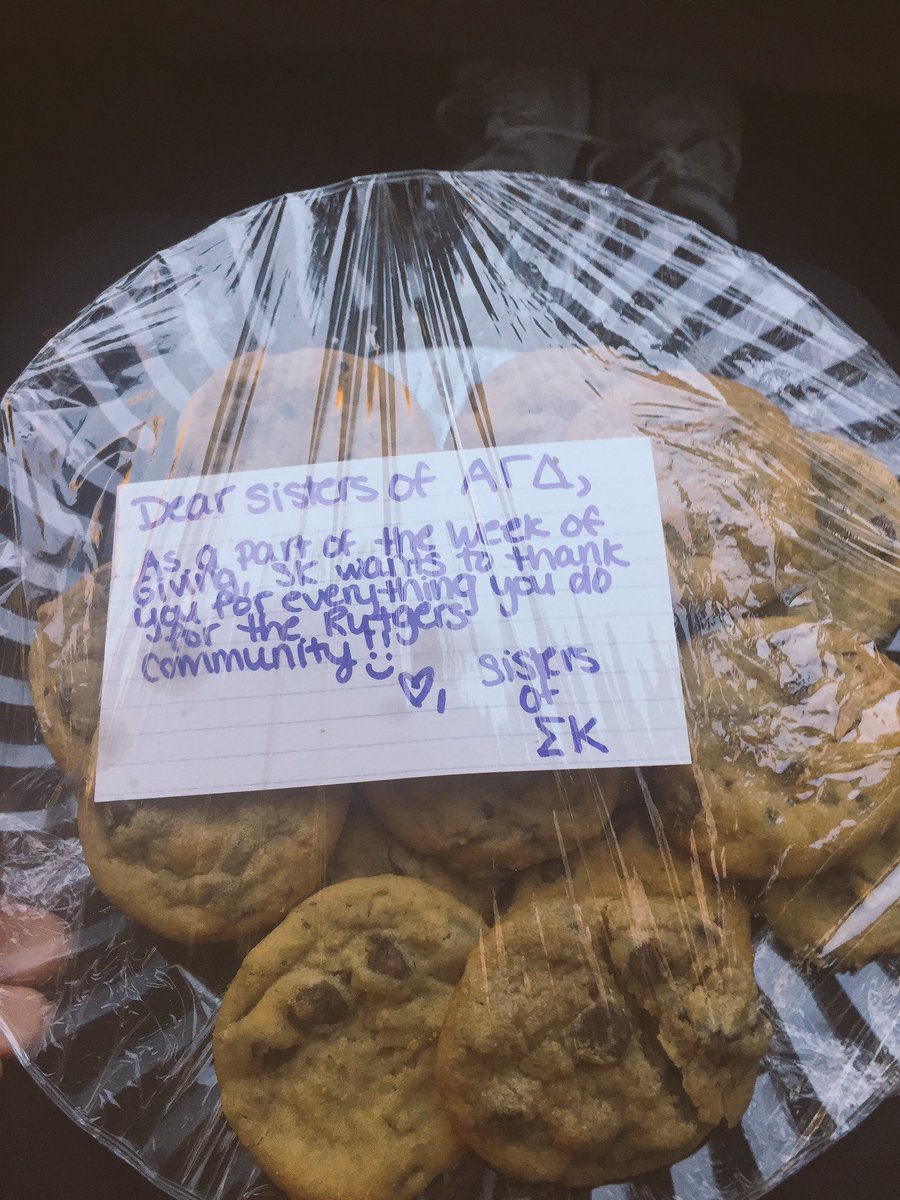 Dear sisters of ΑΓΔ,
As a part of the week of
Giving, SK wants to thank
you for everything you do
for the Rutgers
community :)
♡, sisters
of
ΣΚ